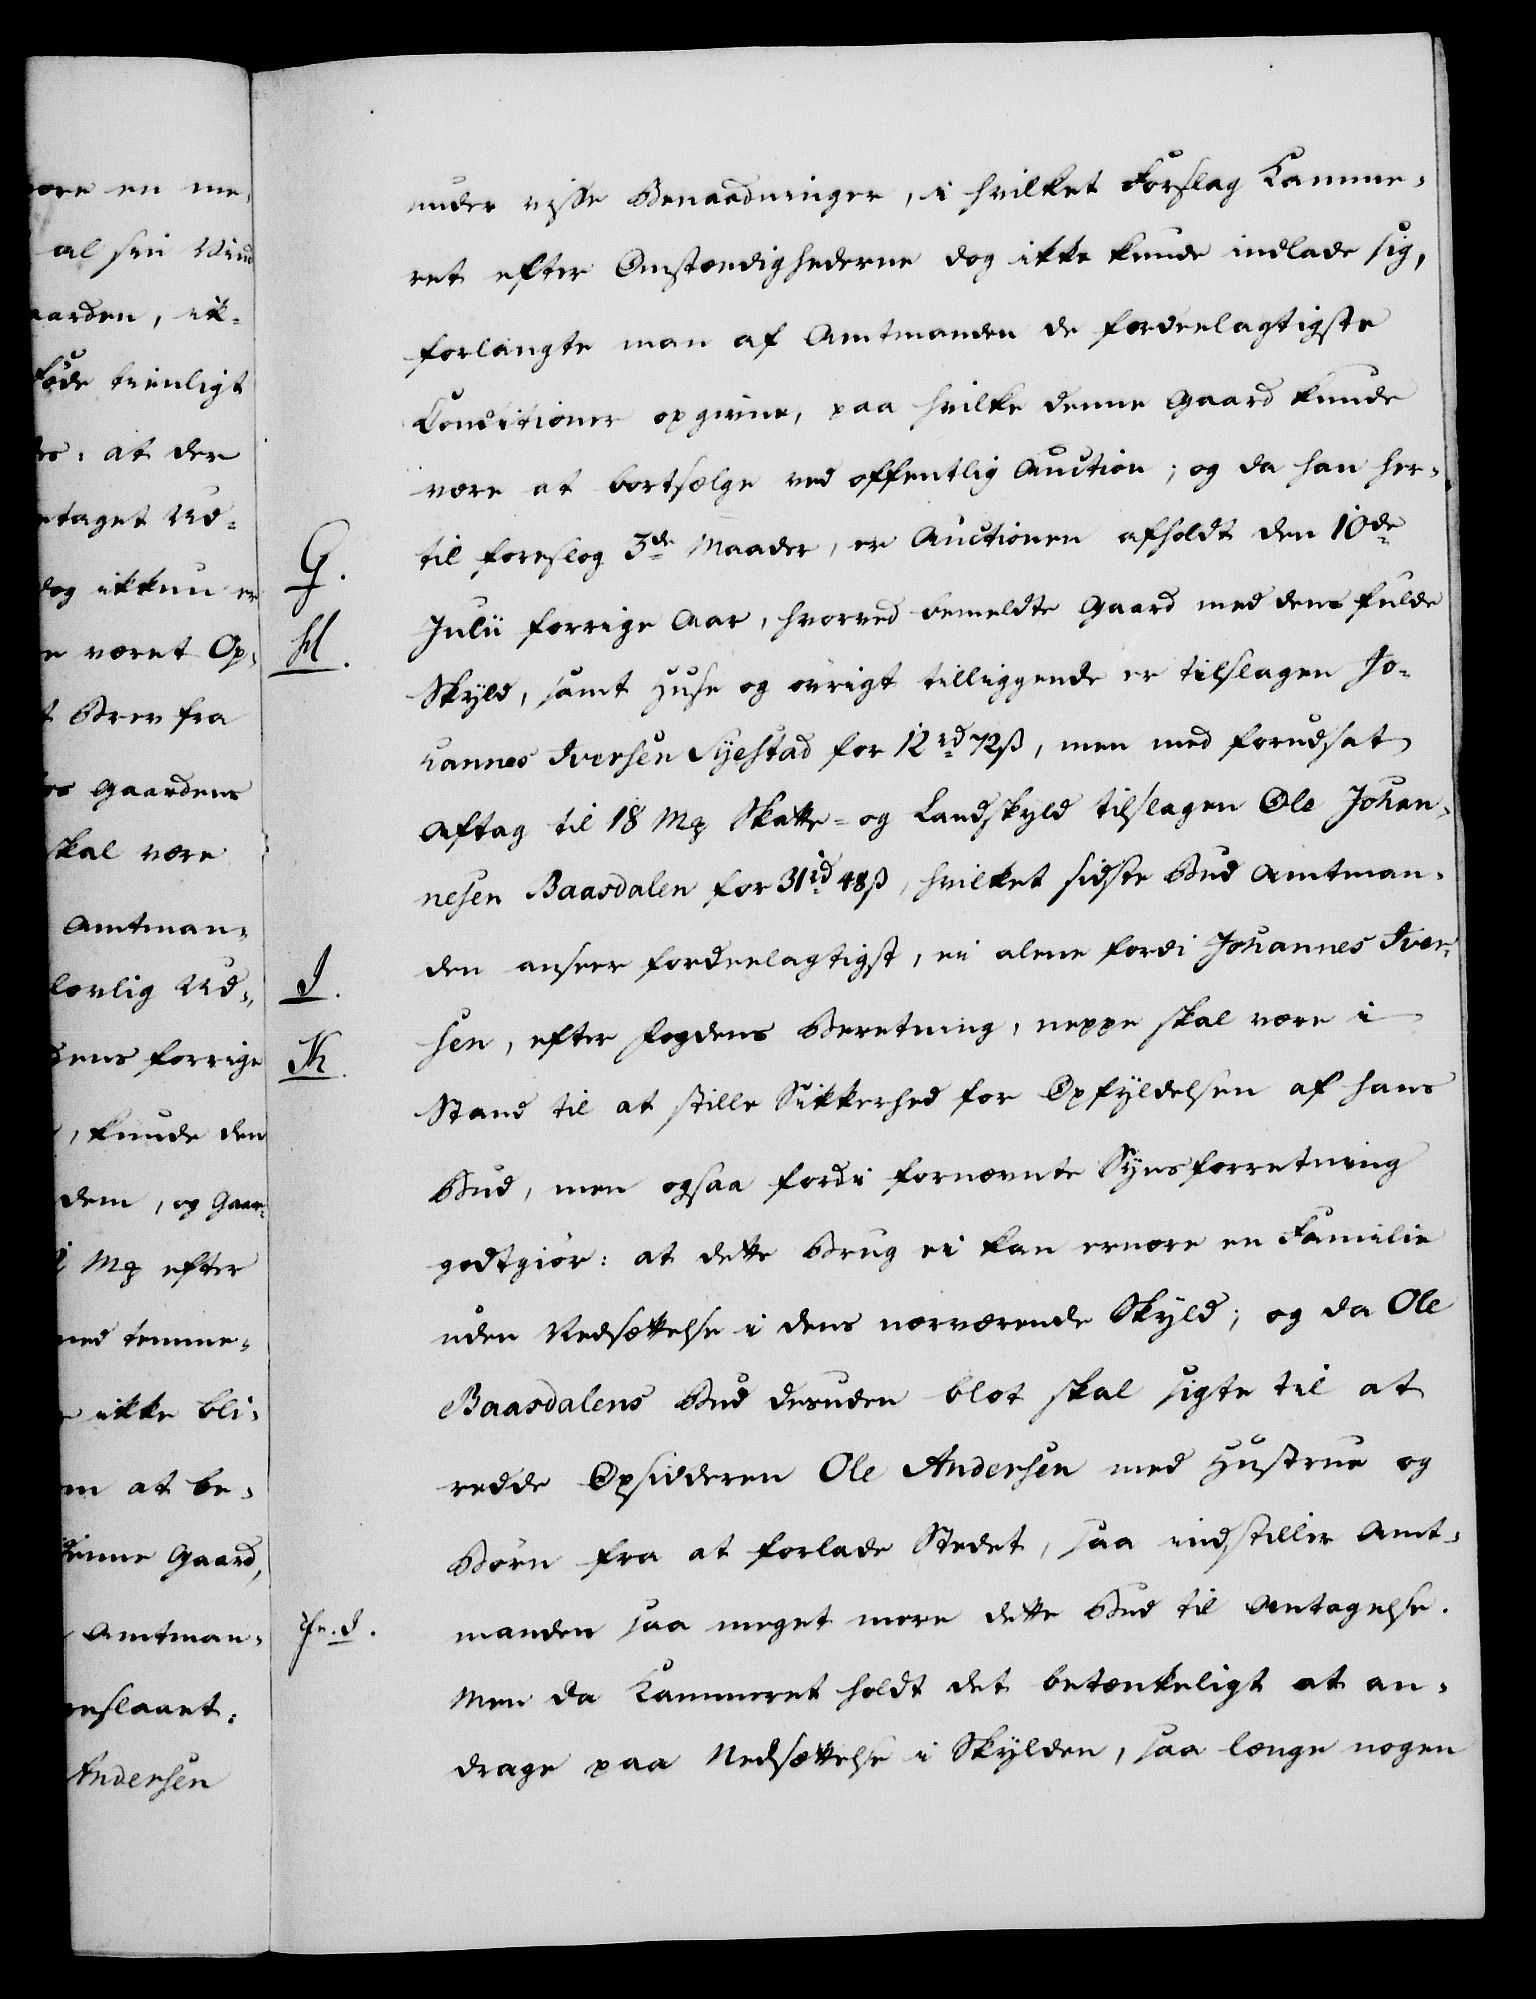 være en me-
al sin Vind
aarden, ik-
Føde tienligt
at der
taget Ud-
dog ikkun er
været Op-
Brev fra
Gaardens
skal være
Amtman-
lovlig Ud-
dens forrige
, kunde den
dem, og Gaar-
Mƶ efter
med temme-
ikke bli-
at be-
denne Gaard,
Amtman-
reslaaet:
Andersen
under visse Benaadninger, i hvilket Forslag Kamme-
ret efter Omstændighederne dog ikke kunde indlade sig,
forlangte man af Amtmanden de fordeelagtigste
Conditioner opgivne, paa hvilke denne Gaard kunde
være at bortsælge ved offentlig Auction; og da han her-
G.
til foreslog 3de Maader, er Auctionen afholdt den 10de
H.
Julii forrige Aar, hvorved bemeldte Gaard med dens fulde
Skyld, samt Huse og øvrigt tilliggende er tilslagen Jo-
hannes Iversen Syestad for 12 rd 72ß, men med forudsat
Aftag til 18 Mƶ Skatte- og Landskyld tilslagen Ole Johan-
nesen Baasdalen for 31 rd 48ß, hvilket sidste Bud Amtman-
I.
den anseer fordeelagtigst, ei alene fordi Johannes Iver-
K.
sen, efter Fogdens Beretning, neppe skal være i
Stand til at stille Sikkerhed for Opfyldelsen af hans
Bud, men ogsaa fordi fornævnte Synsforretning
godtgiør: at dette Brug ei kan ernære en Familie
uden Nedsættelse i dens nærværende Skyld; og da Ole
Baasdalens Bud desuden blot skal sigte til at
redde Opsidderen Ole Andersen med Hustrue og
Børn fra at forlade Stedet, saa indstiller Amt-
manden saa meget mere dette Bud til Antagelse.
Men da Kammeret holdt det betænkeligt at an-
drage paa Nedsættelse i Skylden, saa længe nogen